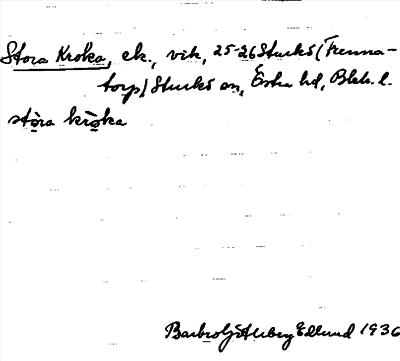 Stora Kroka, ek., vik, 25-26 Sturkö (Trumma-
torp) Sturkö sn, Östra hd, Blek. l.
stòra kròka
Barbro Götlberg Edlund 1936